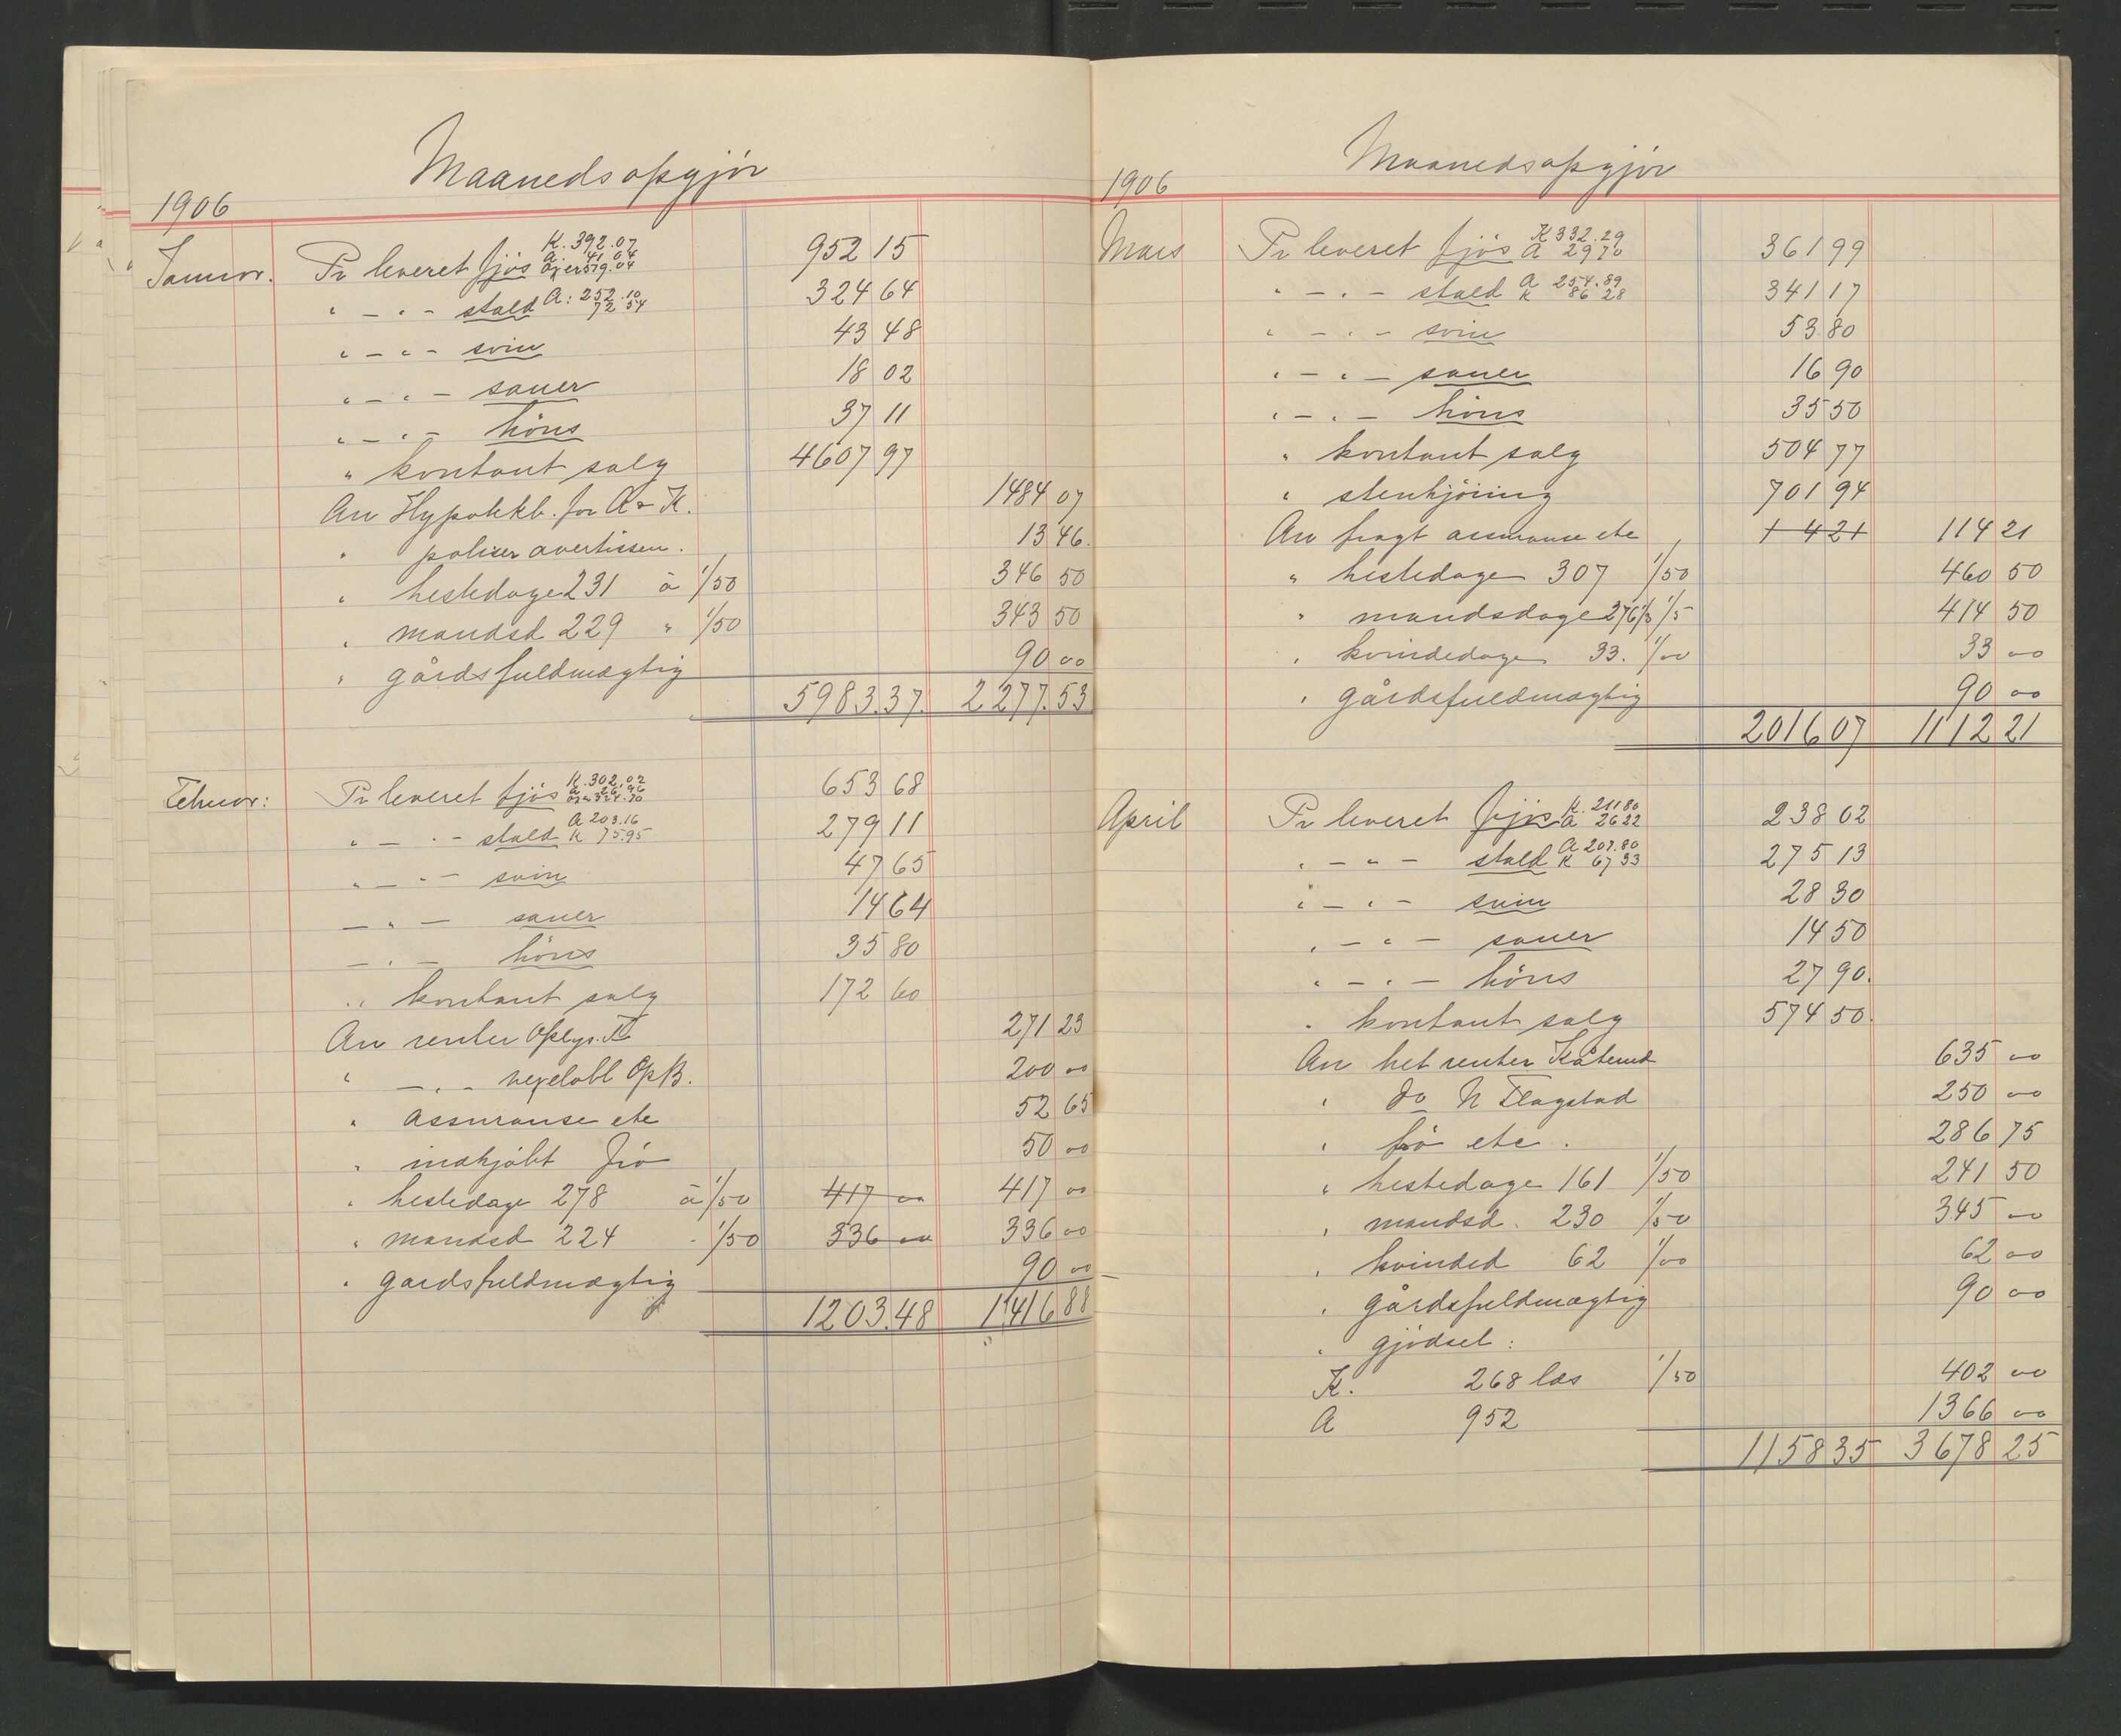 Maanedsopgjör
1906
Januar. Pr leveret fjös K. 392.07 A. 41 04 Ojer 519.04 952 15
" - " - stald A: 252.10 72 54 324 64
" - " - svin 43 48
" - " - sauer 18 02
" - " - höns 37 11
" kontant salg 4607 97
An Hypothkb. for A & K. 1484 07
" poliser avertissem. 13 46.
" hestedage 231 à 1/50 346 50
" mandsd 229 " 1/50 343 50
" gårdsfuldmægtig 90 00
5983.37. 2277.53
Februar: Pr leveret fjös K. 302.02 A 26.96 Ojer 324.70 653 68
" - " - stald A 203.16 K 75.95 279 11
" - " - svin 47 65
- " - sauer 14 64
- " - höns 35 80
" kontant salg 172 60
An renter Oplys. K 271 23
" - " - vexelobl OpB. 200 00
" assuranse etc 52 65
" indkjöbt frö 50 00
" hestedage 278 à 1/50 417 00 417 00
" mandsd 224 " 1/50 336 00 336 00
" gardsfuldmægtig 90 00
1203.48 1416 88
Maanedsopgjör
1906
Mars Pr leveret fjös K 332.29 A 29 70 361 99
" - " - stald A 254.89 K 86 28 341 17
" - " - svin 53 80
" - " - sauer 16 90
" - " - höns 35 50
" kontant salg 504 77
" stenkjöring 701 94
An fragt assuranse etc 1 421 114 21
" hestedage 307 1/50 460 50
" mandsdage 276 1/3 1/5 414 50
" kvindedage 33. 1/00 33 00
" gårdsfuldmægtig 90 00
2016 07 1112 21
April Pr leveret fjös K. 211 80 A 26 22 238 02
" - " - stald A 207.80 K 67 33 275 13
" - " - svin 28 30
" - " - sauer 14 50
" - " - höns 27 90.
" kontant salg 574 50.
An bet renter Kåterud 635 00
" do N Flagstad 250 00
" frö etc. 286 75
" hestedage 161 1/50 241 50
" mandsd. 230 1/50 345 00
" kvinded 62 1/00 62 00
" gårdsfuldmægtig 90 00
" gjödsel:
K. 268 læs 1/50 402 00
A 952 1366 00
1158 35 3678 25